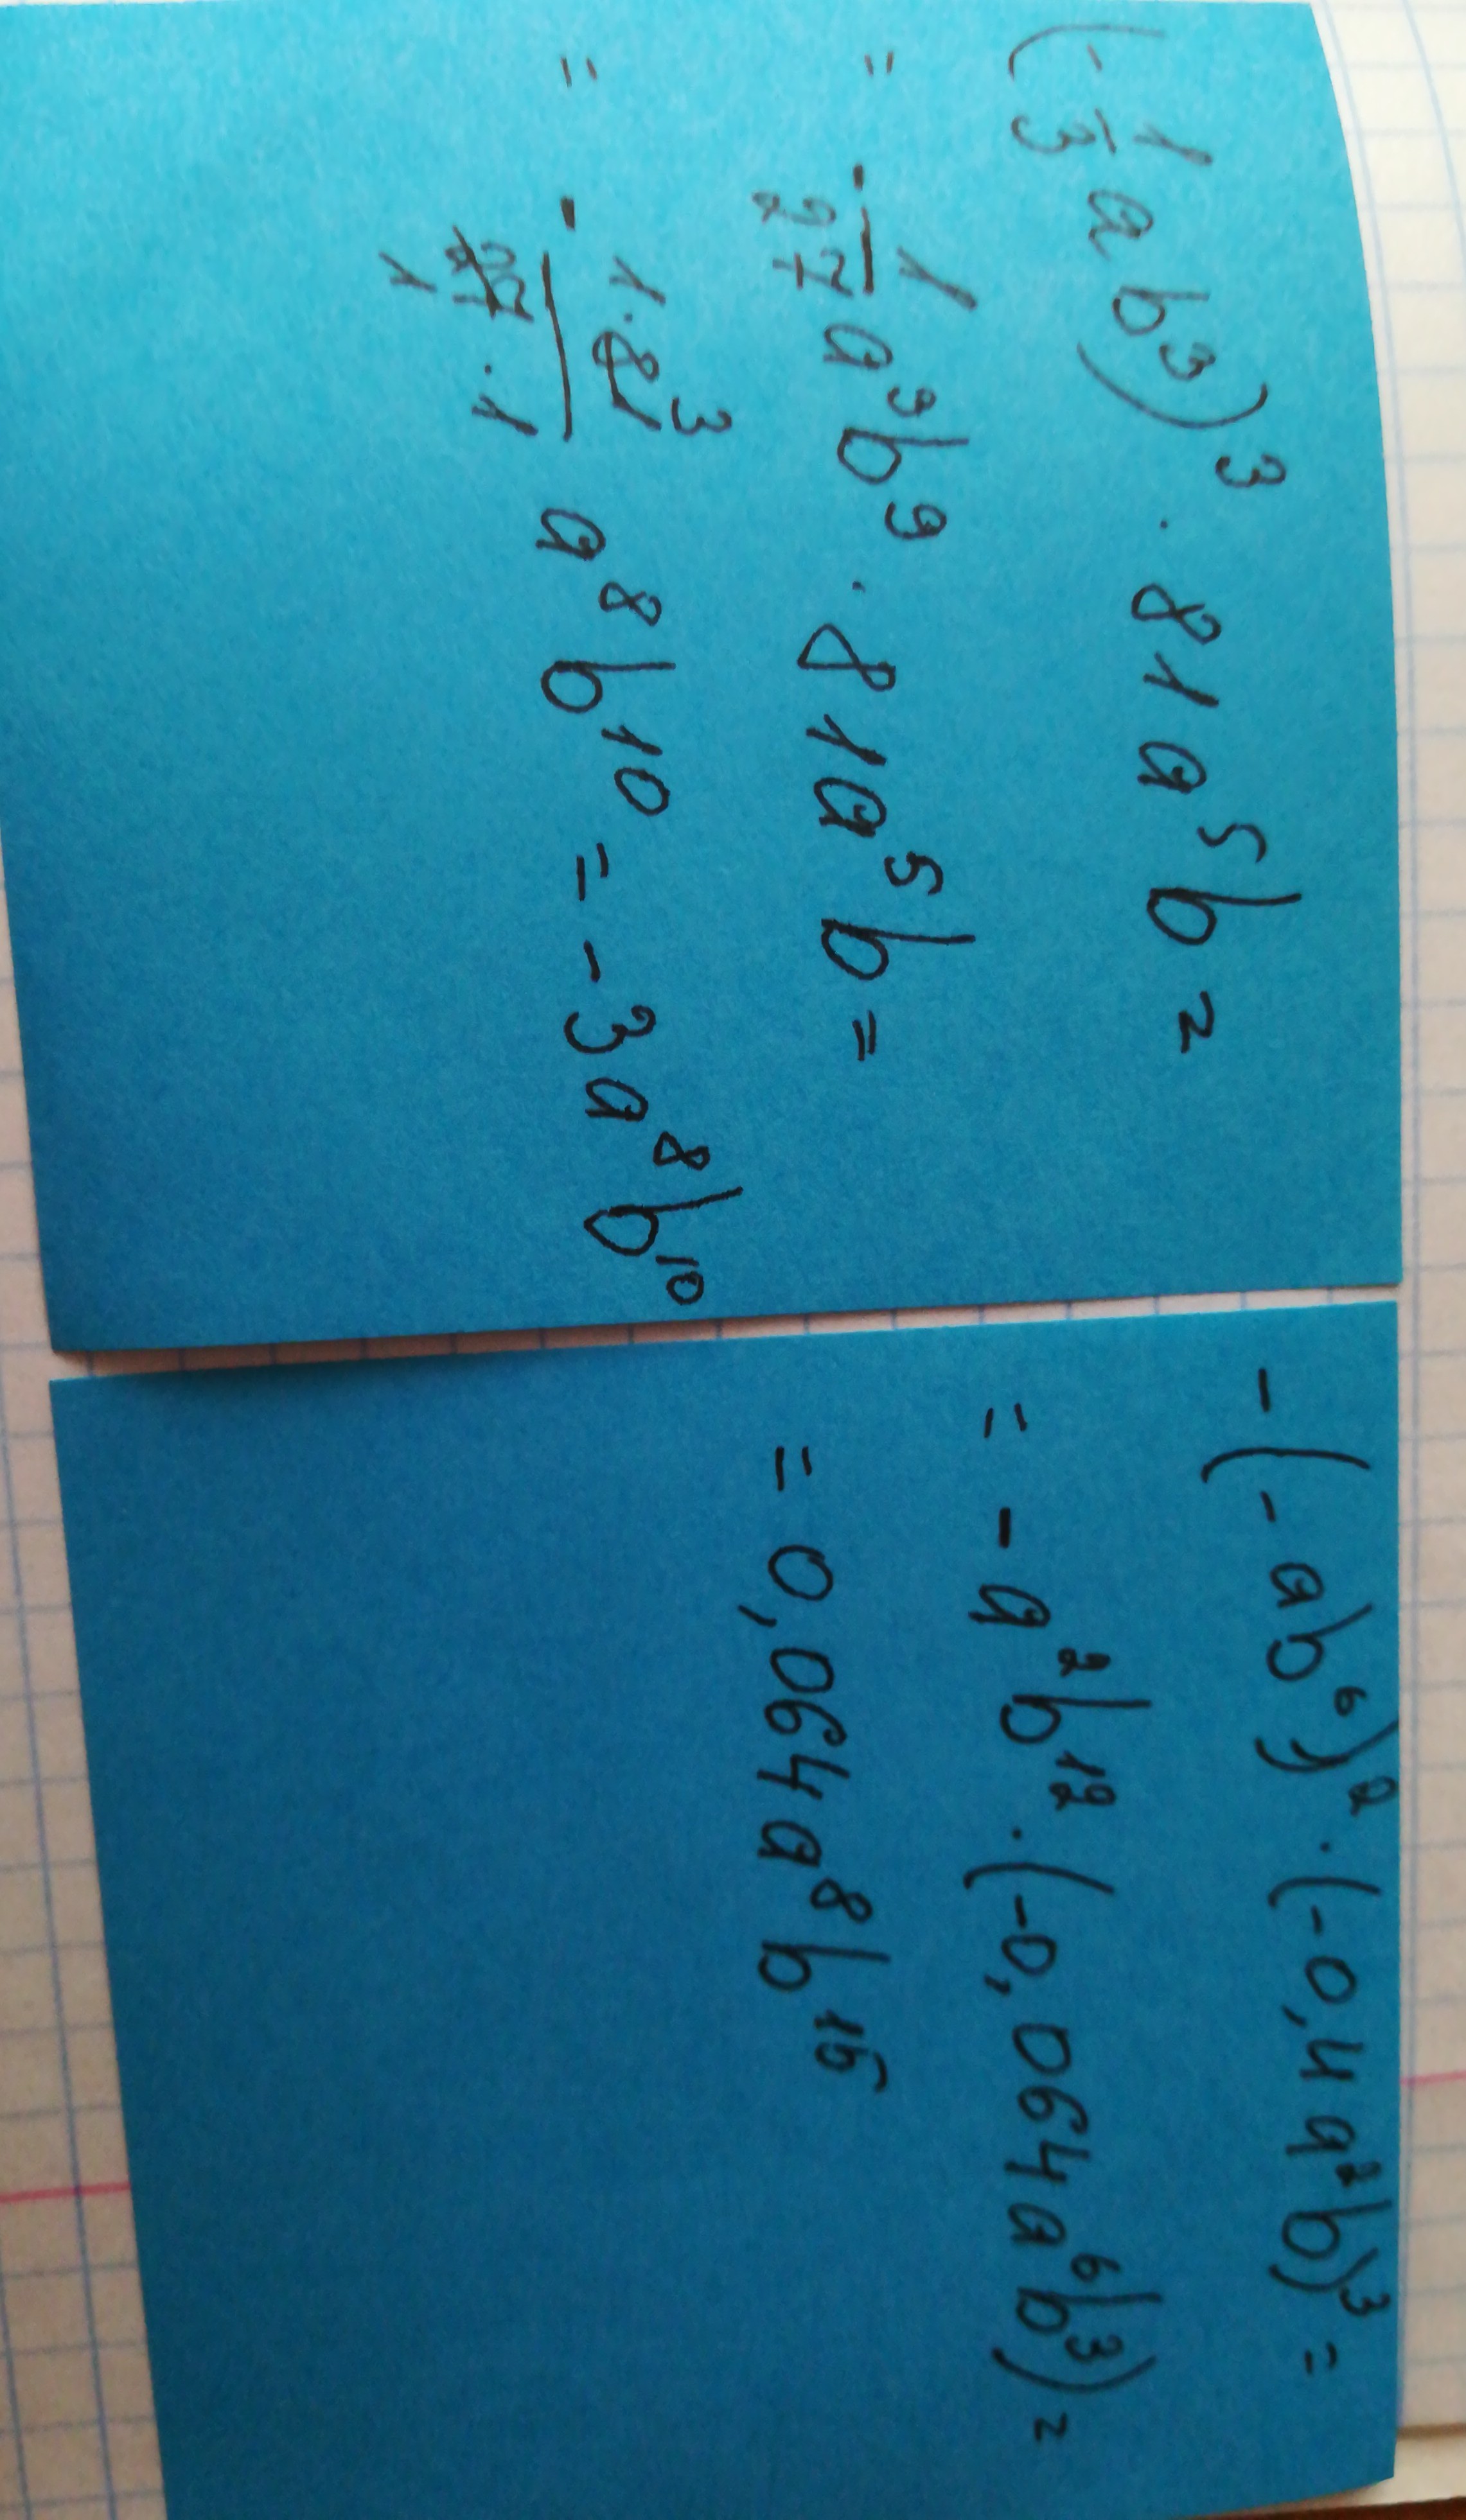 (-1/3 ab³)³ · 81a⁵b =
= -1/27 a³b⁹ · 81a⁵b =
= - 1·81³/27·1 a⁸b¹⁰ = -3a⁸b¹⁰
1
-(-ab⁶)² · (-0,4a²b)³ =
= -a²b¹² · (-0,064a⁶b³) =
= 0,064a⁸b¹⁵